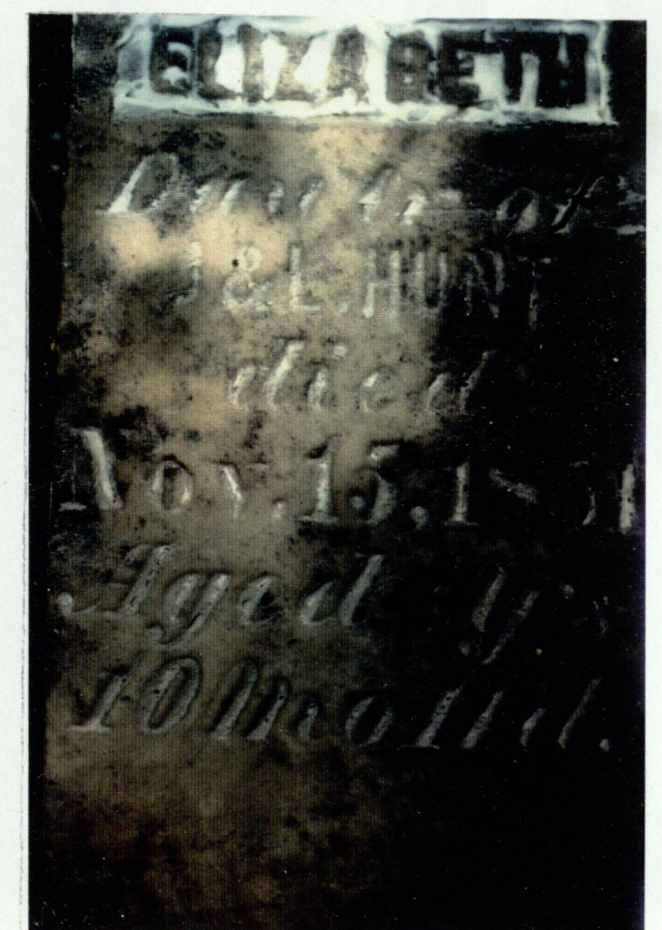 ELIZABETH
of
J & L. HUNT
died
Nov. 15. 18
Aged ys
10 Mo 11 d.